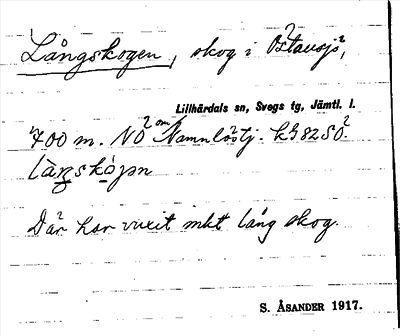 Långskogen, skog i Östansjö,
Lillhärdals sn, Svegs tg, Jämtl. l.
700 m. NÖ om Namnlöstj. k982SÖ
Där har vuxit mkt lång skog.
S. ÅSANDER 1917.